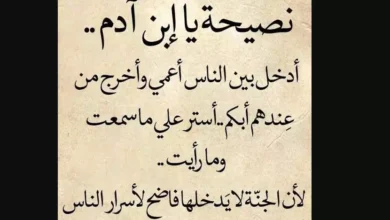 نصيحة يا إبن آدم ..
أدخل بين الناس أعمي وأخرج من
عِندهم أبكم .. أستر علي ماسمعت
وما رأيت ..
لأن الجنّة لا يَدخلها فاضح لأسرار الناس